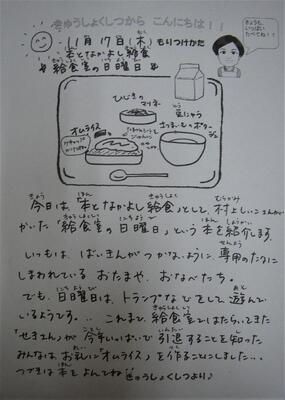 きゅうしょくしつから こんにちは！！
きょうも、いっぱいたべてね！！
11月17日(木) もりつけかた
本となかよし給食
給食室の日曜日
ひじきのマリネ
豆にゅう
オムライス
ケチャップがかかってます
さつまいものポタージュ
今日は、「本となかよし給食」として、村上しいこさんが
かいた「給食室の日曜日」という本を紹介します。
いつもは、ばいきんがつかないように、専用のたなに
しまわれている おたまや、おなべたち。
でも、日曜日は、トランプなどをして遊んで
いるようです。… これまで、給食室ではたらいてきた
「せきさん」が 今年いっぱいで引退することを知った
みんなは、お礼に「オムライス」を作ることにしました…
つづきは本をよんでね (きゅうしょくしつより♪)